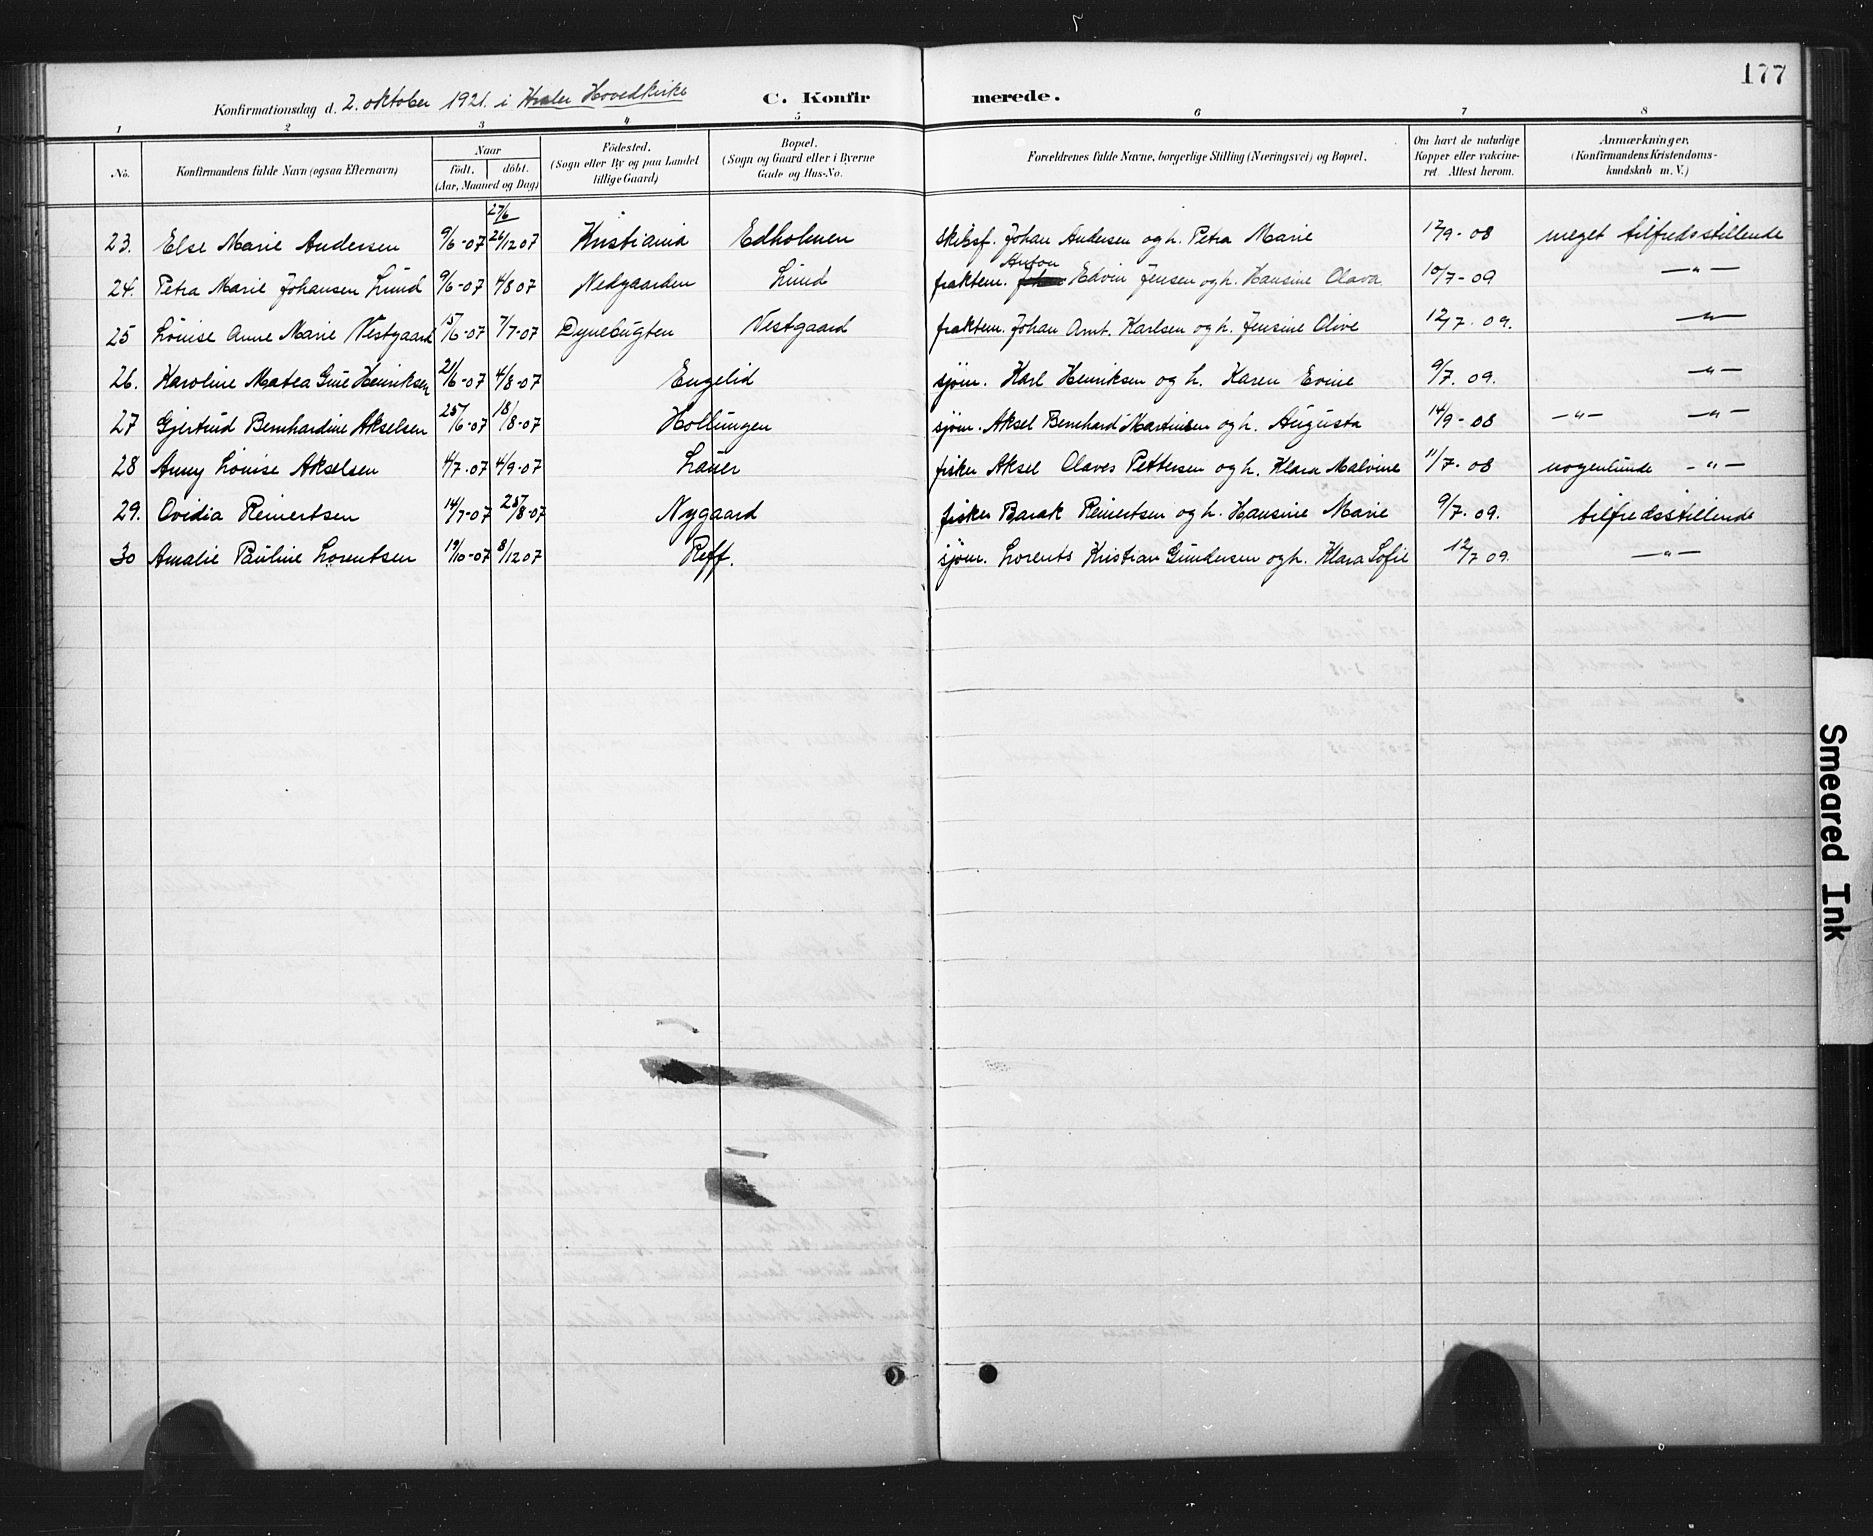 177
Konfirmationsdag d. 2. oktober 1921. i Hvaler Hovedkirke C. Konfirmerede.
1 2 3 4 5 6 7 8
No. Konfirmandens fulde Navn (ogsaa Efternavn) Naar født. døbt. (Aar, Maaned og Dag) Fødested. (Sogn eller By og paa Landet tillige Gaard) Bopæl. (Sogn og Gaard eller i Byerne Gade og Hus-No. Forældrenes fulde Navne, borgerlige Stilling (Næringsvei) og Bopæl. Om havt de naturlige Kopper eller vakcineret. Attest herom. Anmærkninger. (Konfirmandens Kristendomskundskab m. V.)
27/6
23. Else Marie Andersen 9/6-07 26/12 07 Kristiania Edholmen Johan Andersen og h. Petra Marie 17/9-08 meget tilfredsstillende
24. Petra Marie Johansen Lund 9/6-07 4/8 07 Nedgaarden Lund fraktem. Anton Edvin Jensen og h. Hansine Olava 10/7-09 —"—
25 Louise Anne Marie Vestgaard 15/6-07 7/7-07 Dynebugten Vestgaard fraktem. Johan Amt. Karlsen og h. Jensine Olive 12/7. 09. —"—
26. Karoline Matea Gine Henriksen 21/6-07 4/8-07 Engelid sjøm. Karl Henriksen og h. Karen Evine 9/7. 09. —"—
27 Gjertrud Bernhardine Akselsen 25/6-07 18/8-07 Hollungen sjøm. Aksel Bernhard Martinsen og h. Augusta 14/9-08 —"— —"—
28 Anny Louise Akselsen 4/7-07 4/9-07 Lauer fisker Aksel Olaves Pettersen og h. Klara Malvine 11/7-08 nogenlunde —"—
29. Ovidia Reinertsen 14/7-07 25/8-07 Nygaard fisker Barak Reinertsen og h. Hansine Marie 9/7-09. tilfredsstillende
30 Amalie Pauline Lorentsen 19/10-07 8/12 07 Reff. sjøm. Lorents Kristian Gundersen og h. Klara Sofie 12/7 09. —"—
Smeared Ink